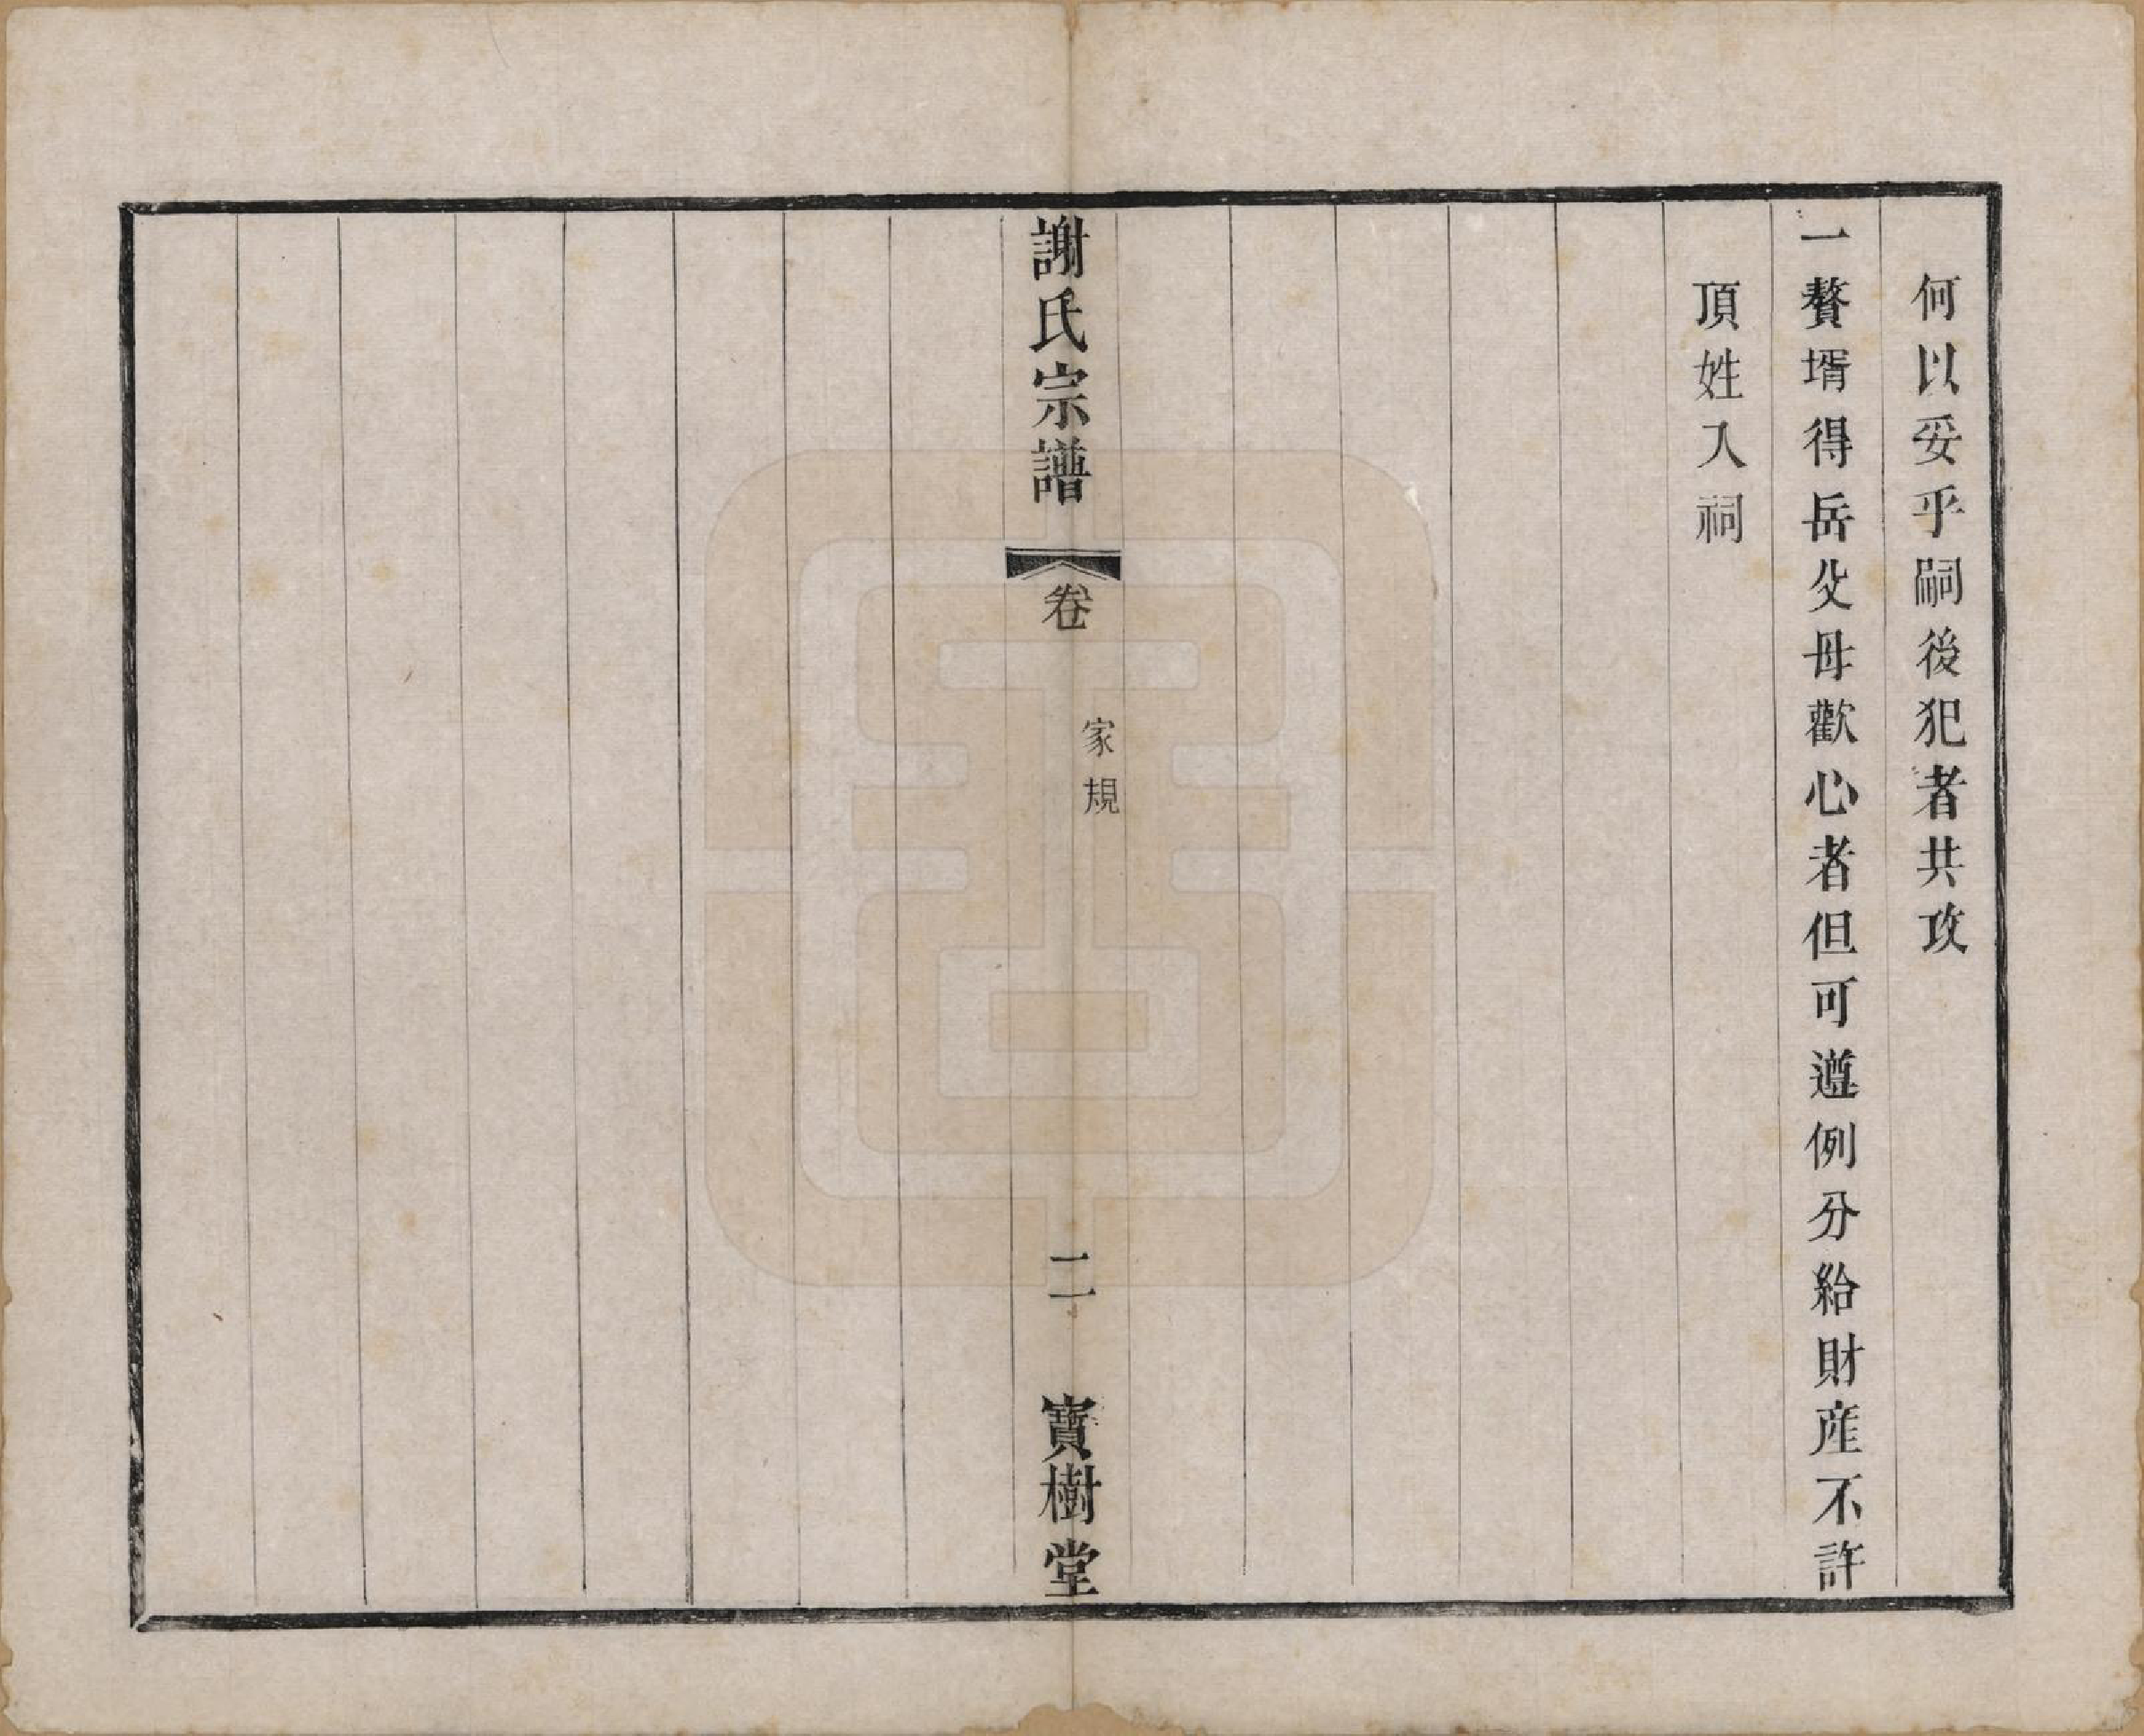 何以妥乎嗣後犯者共攻
一贅壻得岳父母歡心者但可遵例分給財産不許
頂姓入祠
謝氏宗譜
卷
家規
二
寳樹堂